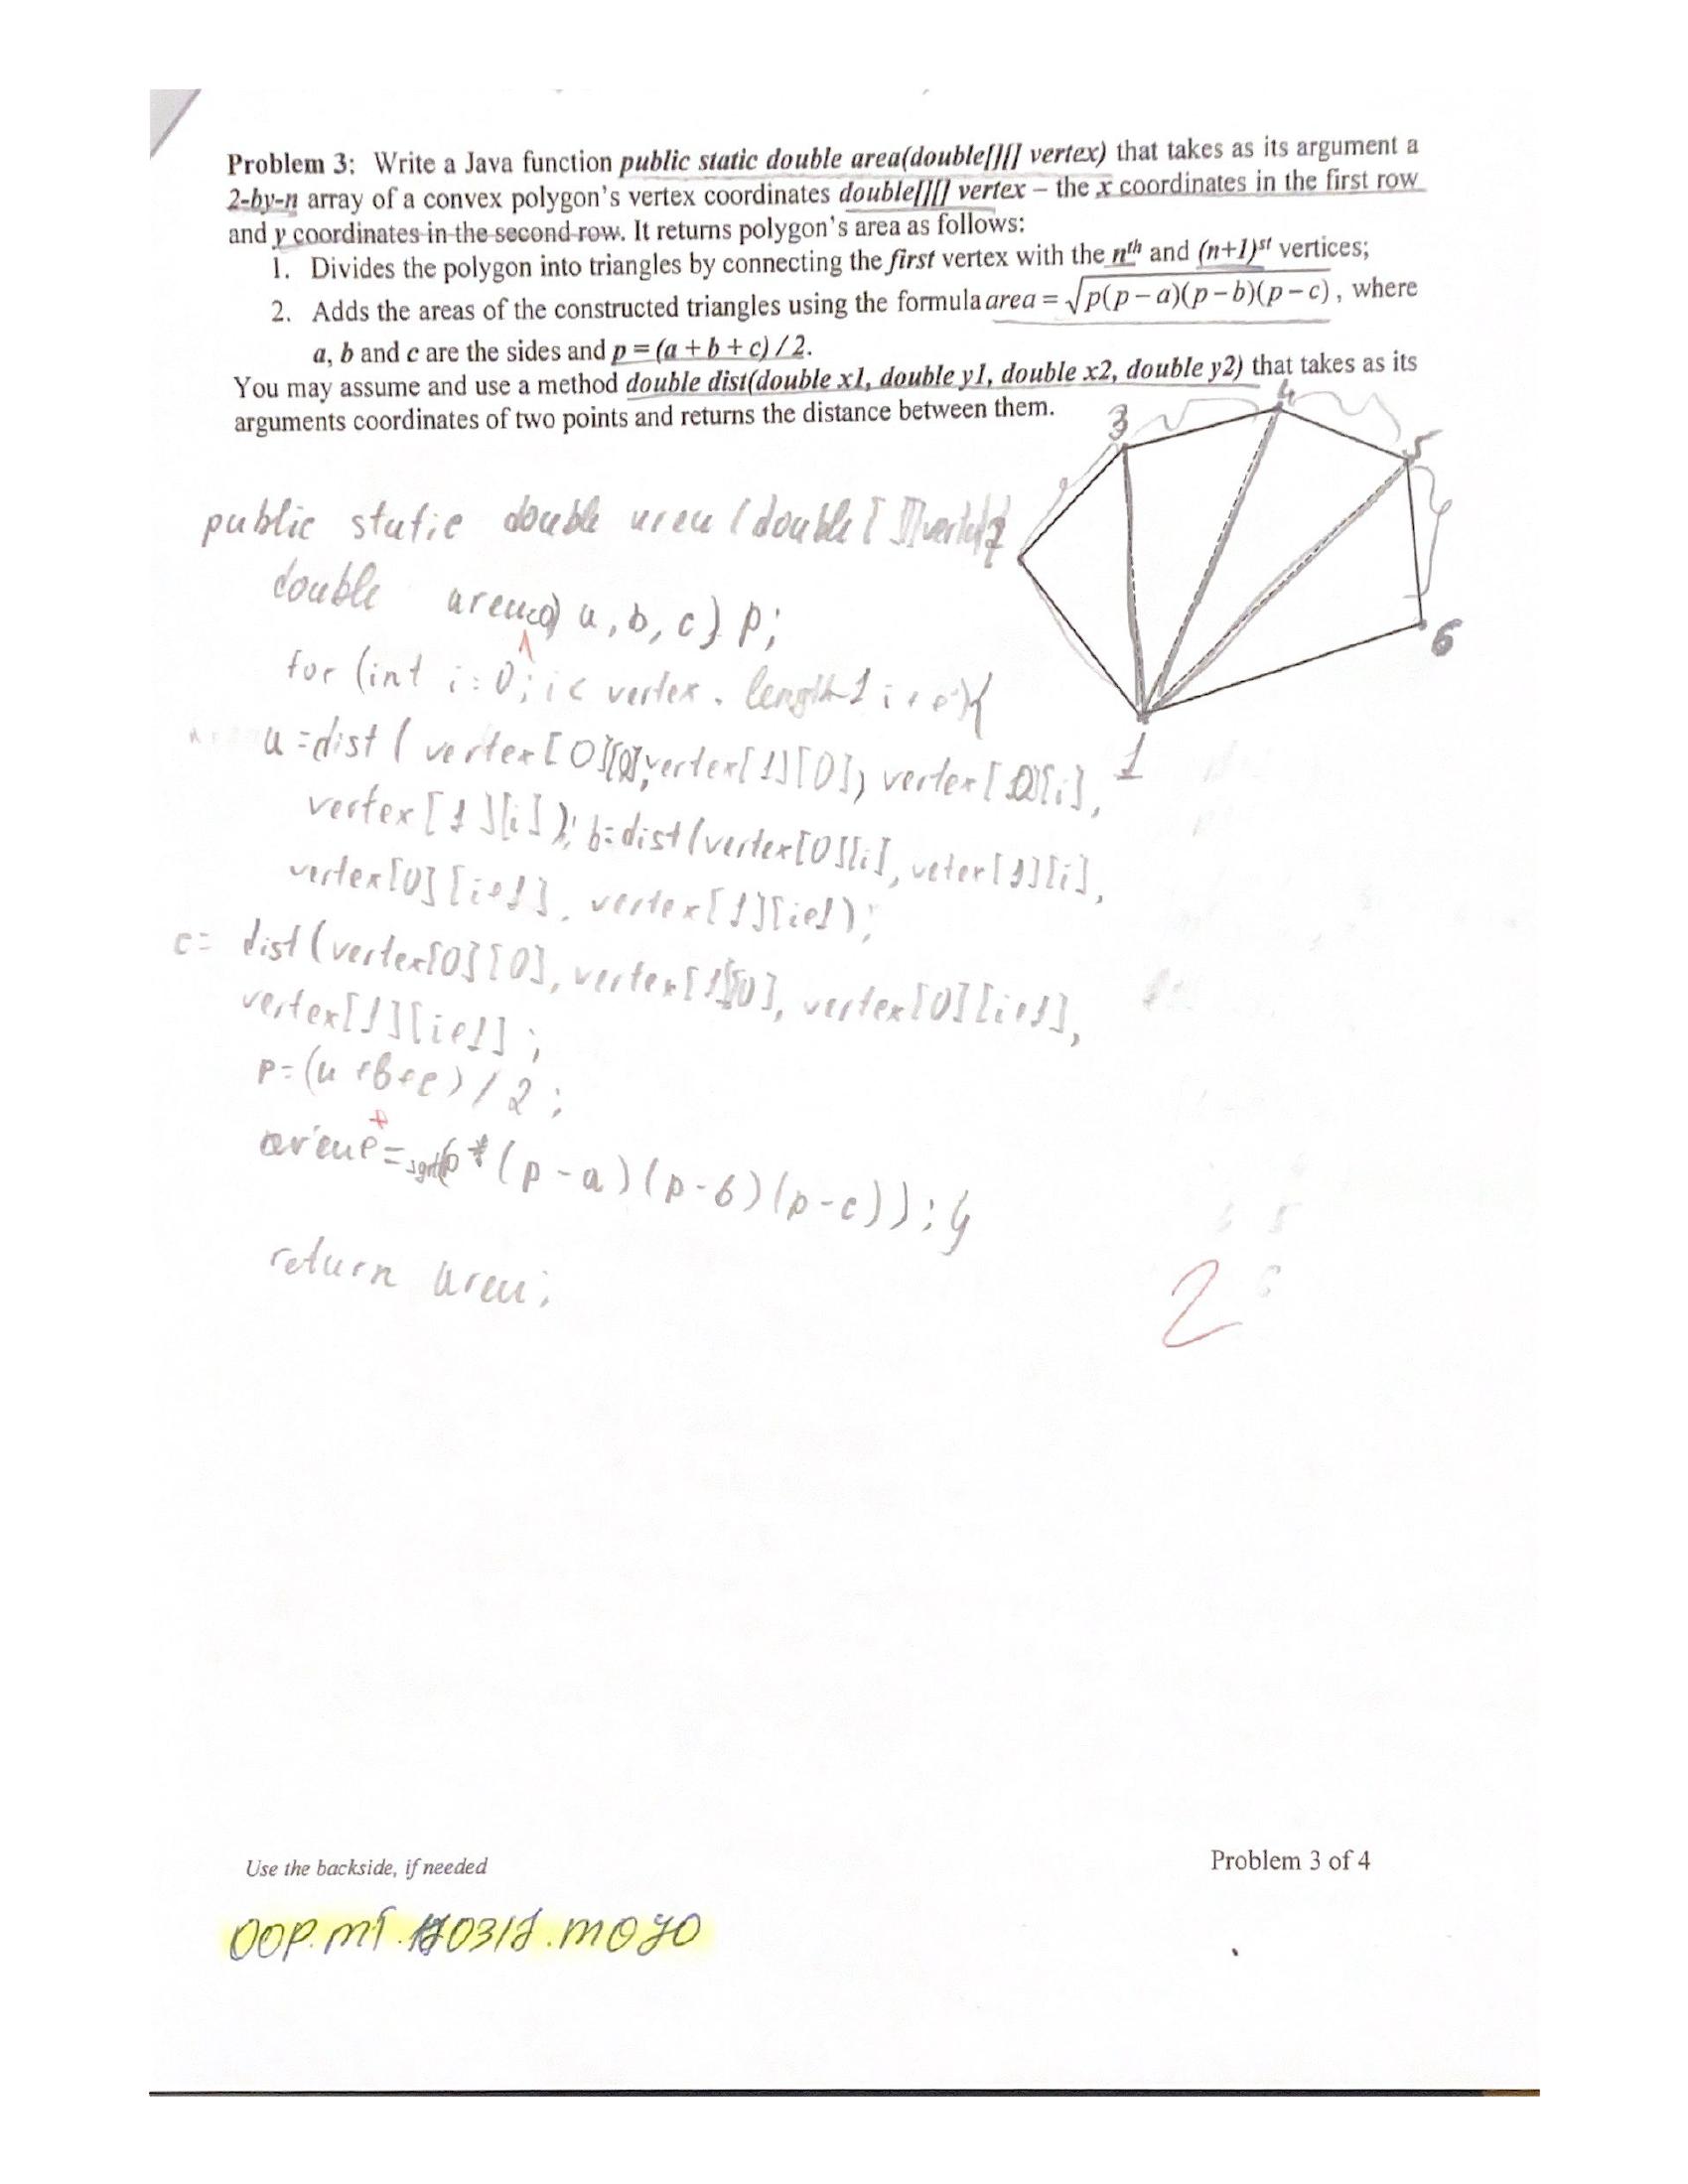 Problem 3: Write a Java function public static double area(double[][] vertex) that takes as its argument a
2-by-n array of a convex polygon's vertex coordinates double[][] vertex – the x coordinates in the first row
and y coordinates in the second row. It returns polygon's area as follows:
1. Divides the polygon into triangles by connecting the first vertex with the nth and (n+1)st vertices;
2. Adds the areas of the constructed triangles using the formula area = √p(p – a)(p – b)(p – c) , where
a, b and c are the sides and p = (a + b + c) / 2.
You may assume and use a method double dist(double x1, double y1, double x2, double y2) that takes as its
arguments coordinates of two points and returns the distance between them.
3
4
5
6
1
public static double area (double [ ][] vertex){
double area=0, a, b, c, p;
for (int i=0; i< vertex . length-1 i++){
a =dist ( vertex[0][0], vertex[1][0], vertex[0][i],
vertex [1][i]); b=dist(vertex[0][i], veter[1][i],
vertex[0][i+1], vertex[1][i+1);
c= dist(vertex[0][0], vertex[1][0], vertex[0][i+1],
vertex[1][i+1] ;
p=(a+b+c)/2;
area+=sqrt(p*(p-a)(p-b)(p-c));}
return area;
2
Use the backside, if needed
Problem 3 of 4